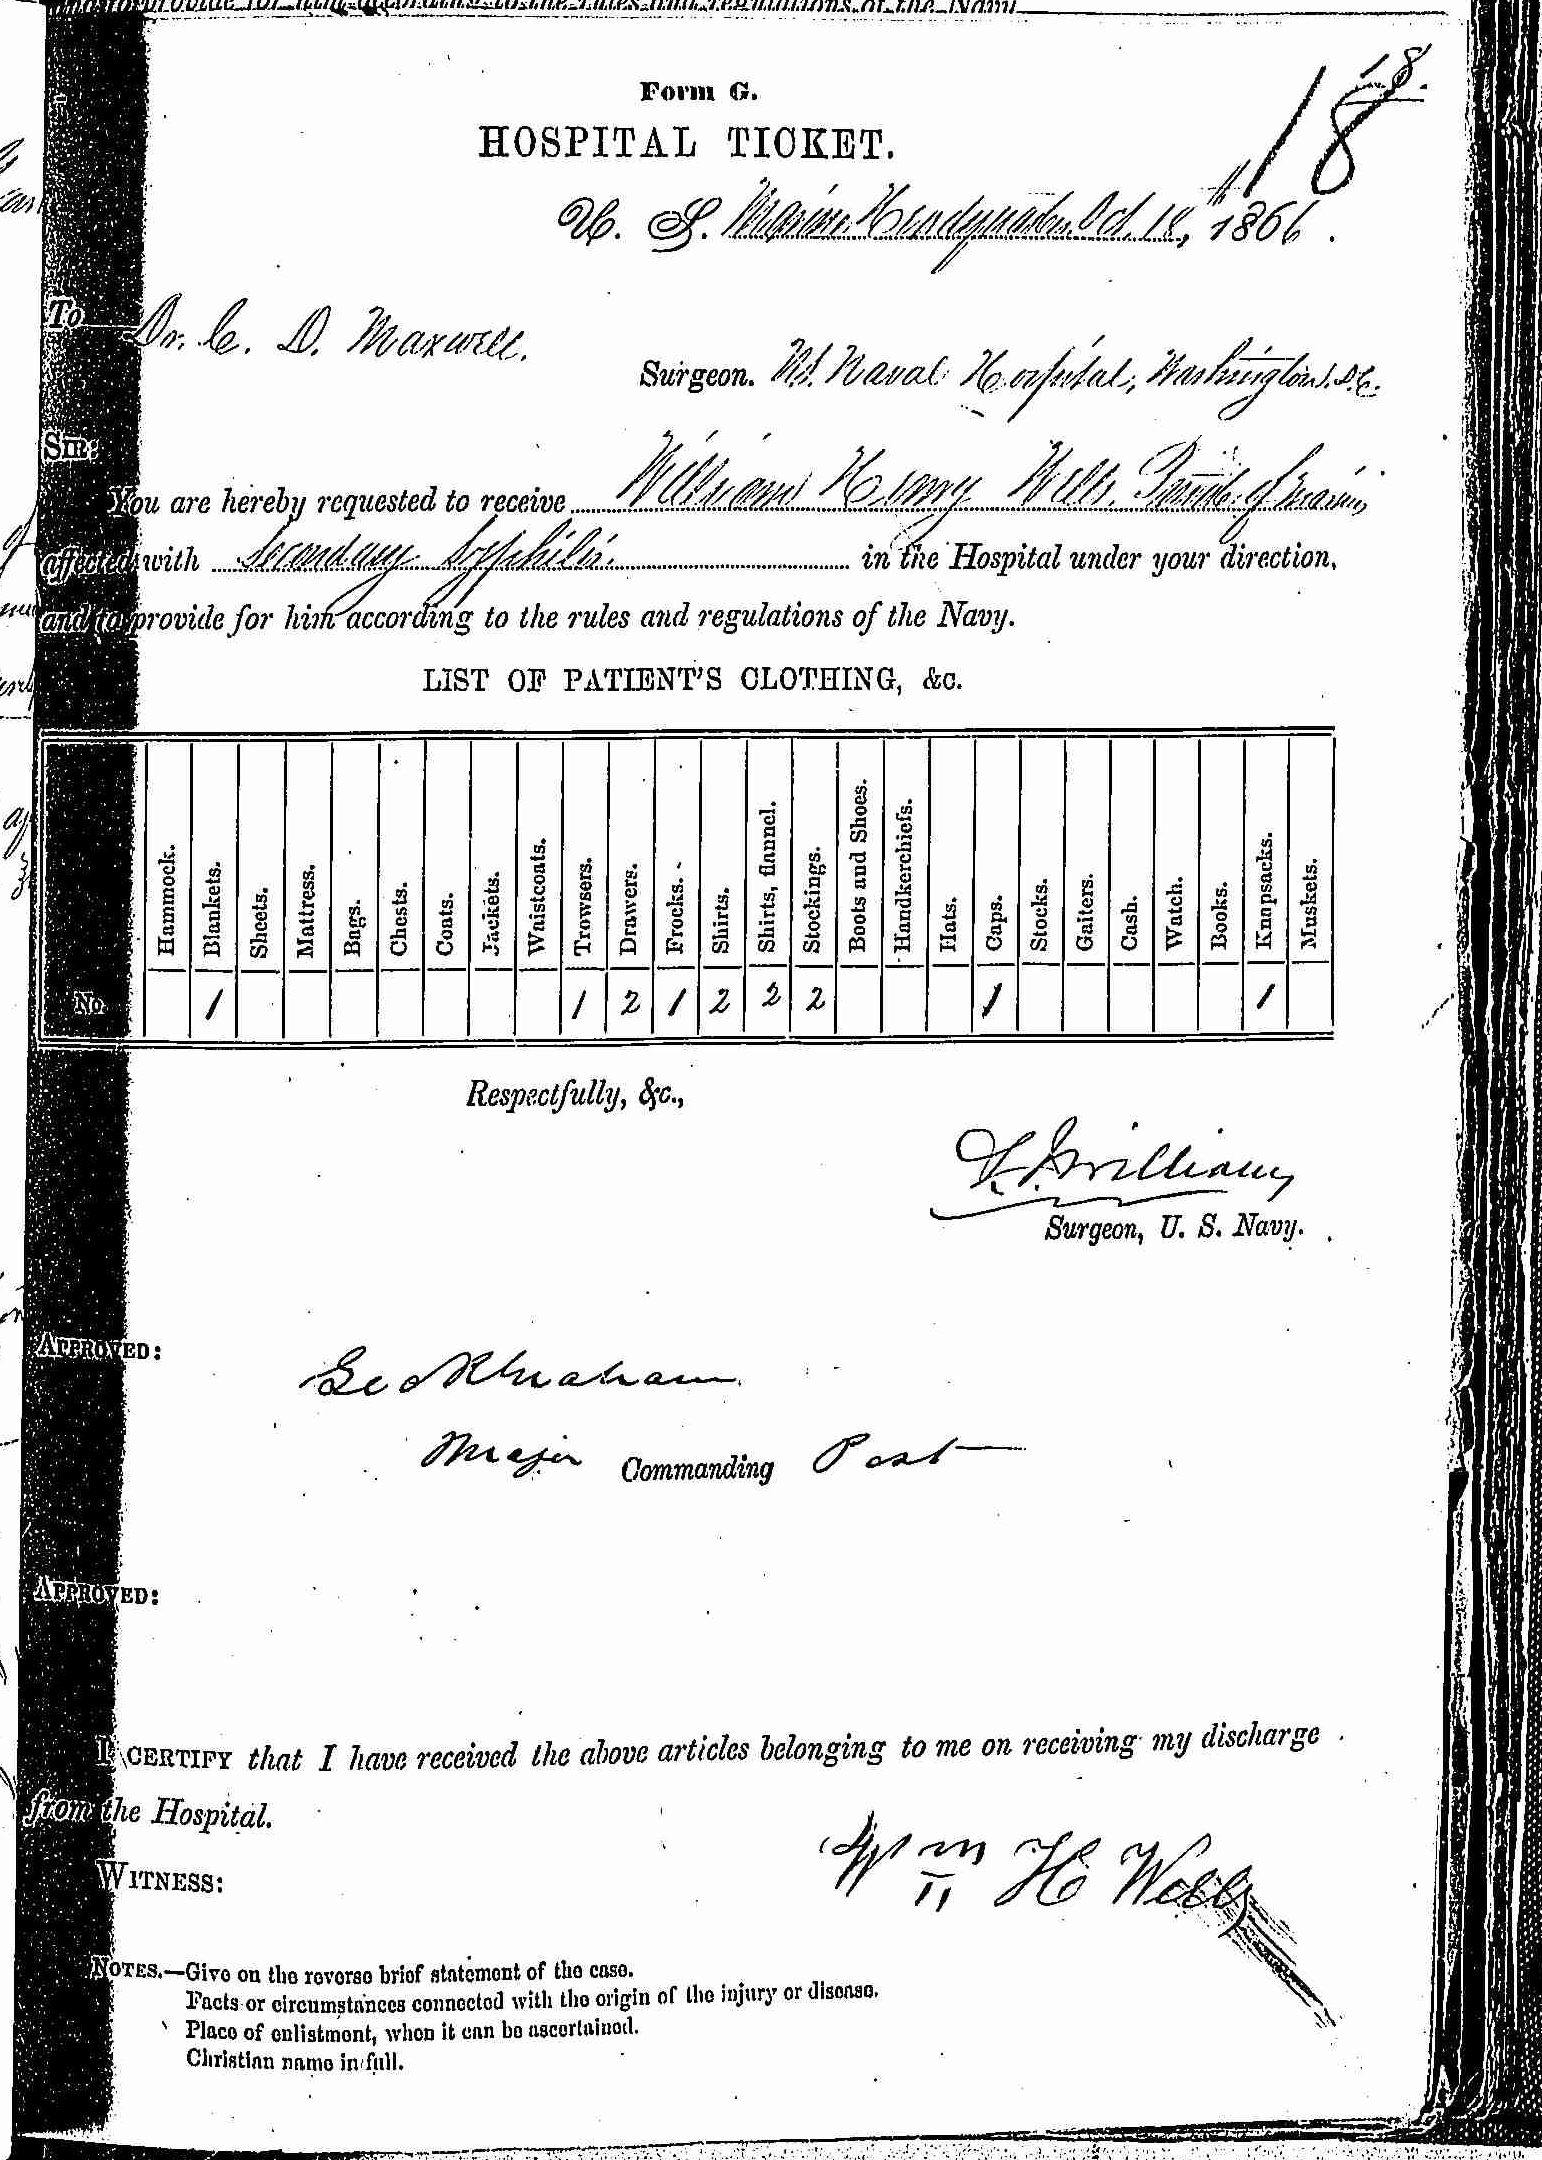 and to provide for him according to the rules and regulations of the Navy
18.
18
Form G.
HOSPITAL TICKET.
U. S. Marine Headquarters Oct. 18th, 1866.
To Dr. C. D. Maxwell.
Surgeon. U.S. Naval Hospital, Washington. D.C.
SIR:
You are hereby requested to receive William Henry Wells. Private of Marines
affected with Secondary Syphilis. in the Hospital under your direction,
and to provide for him according to the rules and regulations of the Navy.
LIST OF PATIENT'S CLOTHING, &c.
Hammock. Blankets. Sheets. Mattress. Bags. Chests. Coats. Jackets. Waistcoats. Trowsers. Drawers. Frocks. Shirts. Shirts, flannel. Stockings. Boots and Shoes. Handkerchiefs. Hats. Caps. Stocks. Gaiters. Cash. Watch. Books. Knapsacks. Muskets.
No. 1 1 2 1 2 2 2 1 1
Respectfully, &c.,
Williams
Surgeon, U. S. Navy.
APPROVED:
Geo R Graham
Major Commanding Post
APPROVED:
I CERTIFY that I have received the above articles belonging to me on receiving my discharge
from the Hospital.
Wm H Wells
WITNESS:
NOTES.—Give on the reverse brief statement of the case.
Facts or circumstances connected with the origin of the injury or disease.
Place of enlistment, when it can be ascertained.
Christian name in full.